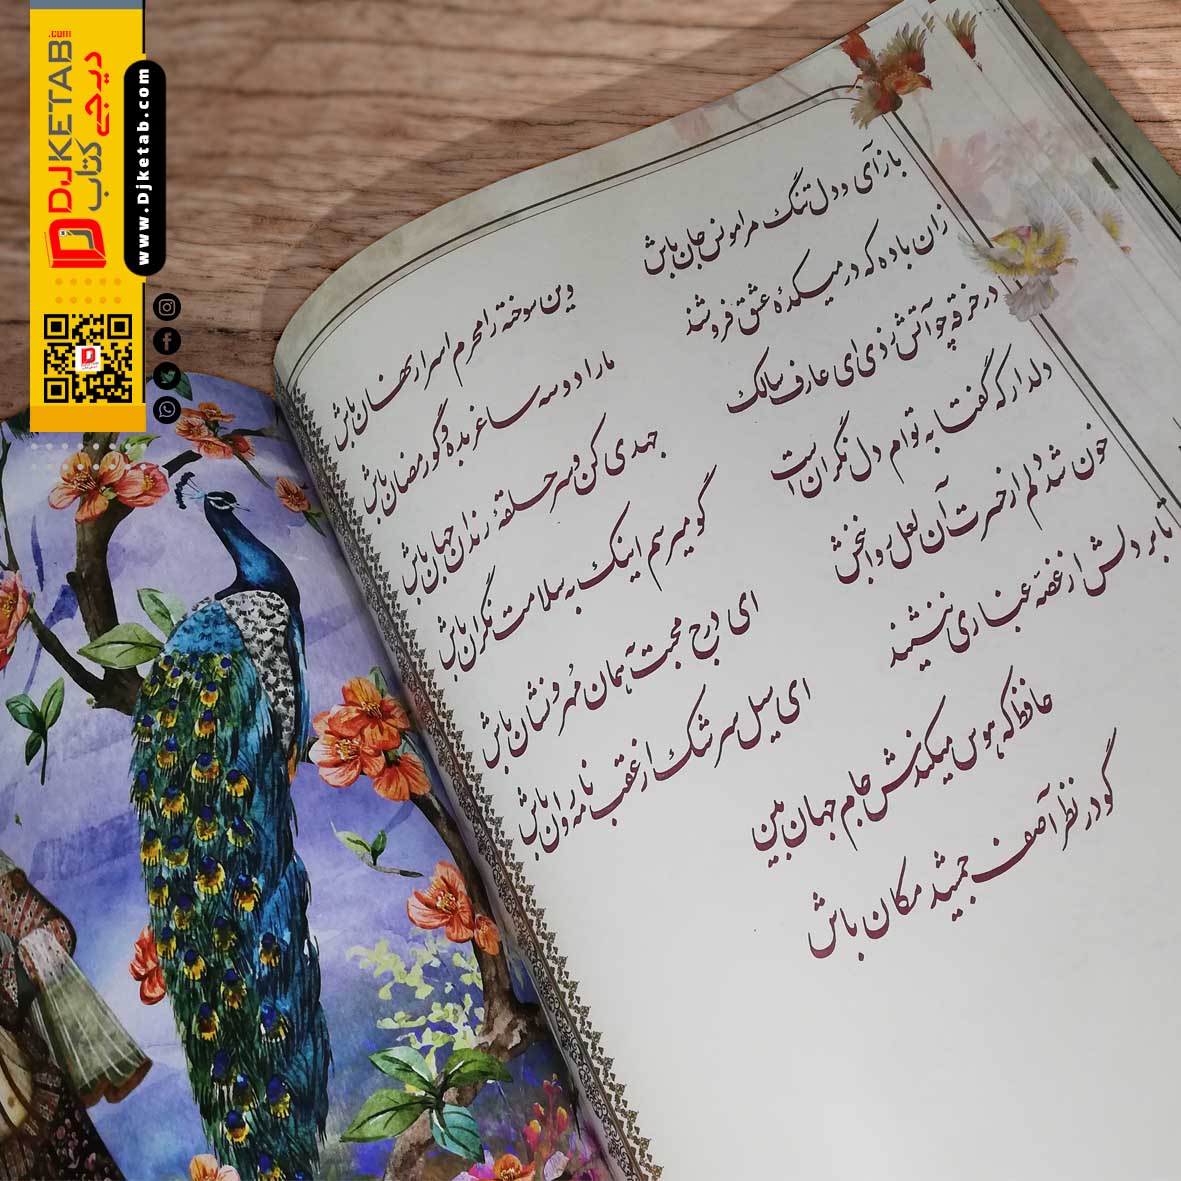 .com
DJKETAB
دی‌جی کتاب
www.Djketab.com
بازآی و دل تنگ مرا مونس جان باش
وین سوخته را محرم اسرار نهان باش
زان باده که در میکدهٔ عشق فروشند
ما را دو سه ساغر بده و گو رمضان باش
در خرقه چو آتش زدی ای عارف سالک
جهدی کن و سر حلقهٔ رندان جهان باش
دلدار که گفتا به توام دل نگران است
گو میرسم اینک به سلامت نگران باش
خون شد دلم از حسرت آن لعل روانبخش
ای درج محبت به همان مُهر و نشان باش
تا بر دلش از غصّه غباری ننشیند
ای سیل سرشک از عقب نامه روان باش
حافظ که هوس میکندش جام جهان بین
گو در نظر آصف جمشید مکان باش